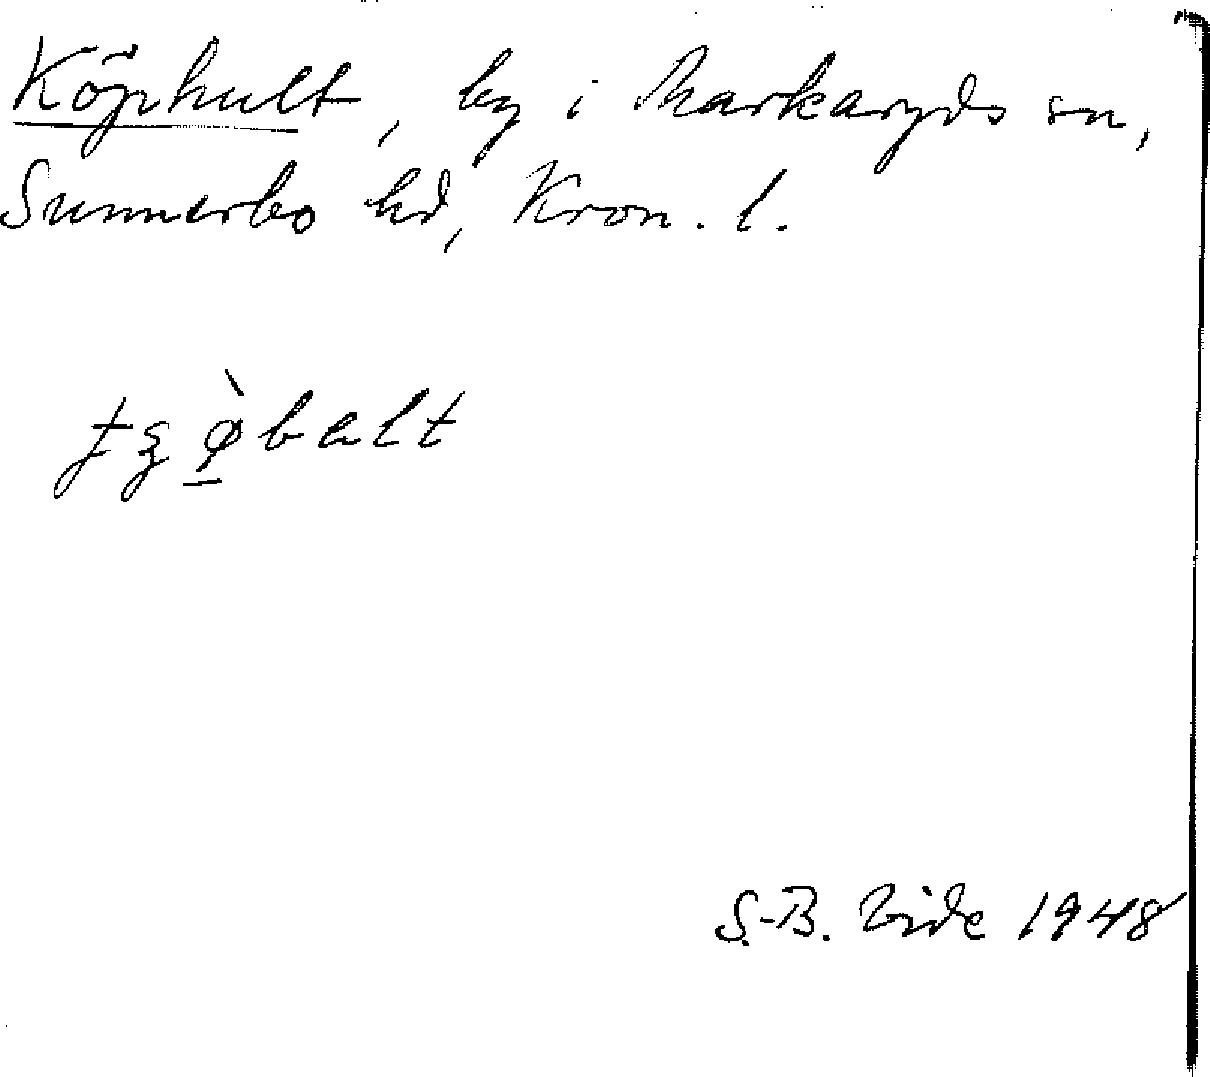 Köphult, by i Markaryds sn,
Sunnerbo hd, Kron. l.
S.-B. Vide 1948